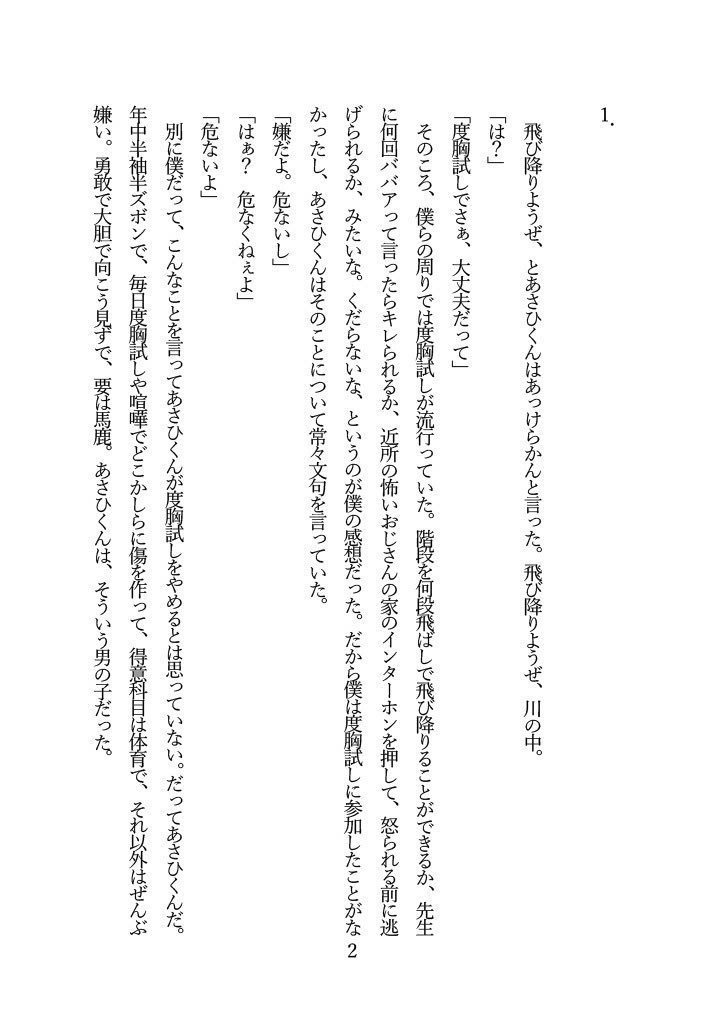 1.
飛び降りようぜ、とあさひくんはあっけらかんと言った。飛び降りようぜ、川の中。
「は？」
「度胸試しでさぁ、大丈夫だって」
そのころ、僕らの周りでは度胸試しが流行っていた。階段を何段飛ばしで飛び降りることができるか、先生
に何回ババアって言ったらキレられるか、近所の怖いおじさんの家のインターホンを押して、怒られる前に逃
げられるか、みたいな。くだらないな、というのが僕の感想だった。だから僕は度胸試しに参加したことがな
かったし、あさひくんはそのことについて常々文句を言っていた。
「嫌だよ。危ないし」
「はぁ？　危なくねぇよ」
「危ないよ」
別に僕だって、こんなことを言ってあさひくんが度胸試しをやめるとは思っていない。だってあさひくんだ。
年中半袖半ズボンで、毎日度胸試しや喧嘩でどこかしらに傷を作って、得意科目は体育で、それ以外はぜんぶ
嫌い。勇敢で大胆で向こう見ずで、要は馬鹿。あさひくんは、そういう男の子だった。
2